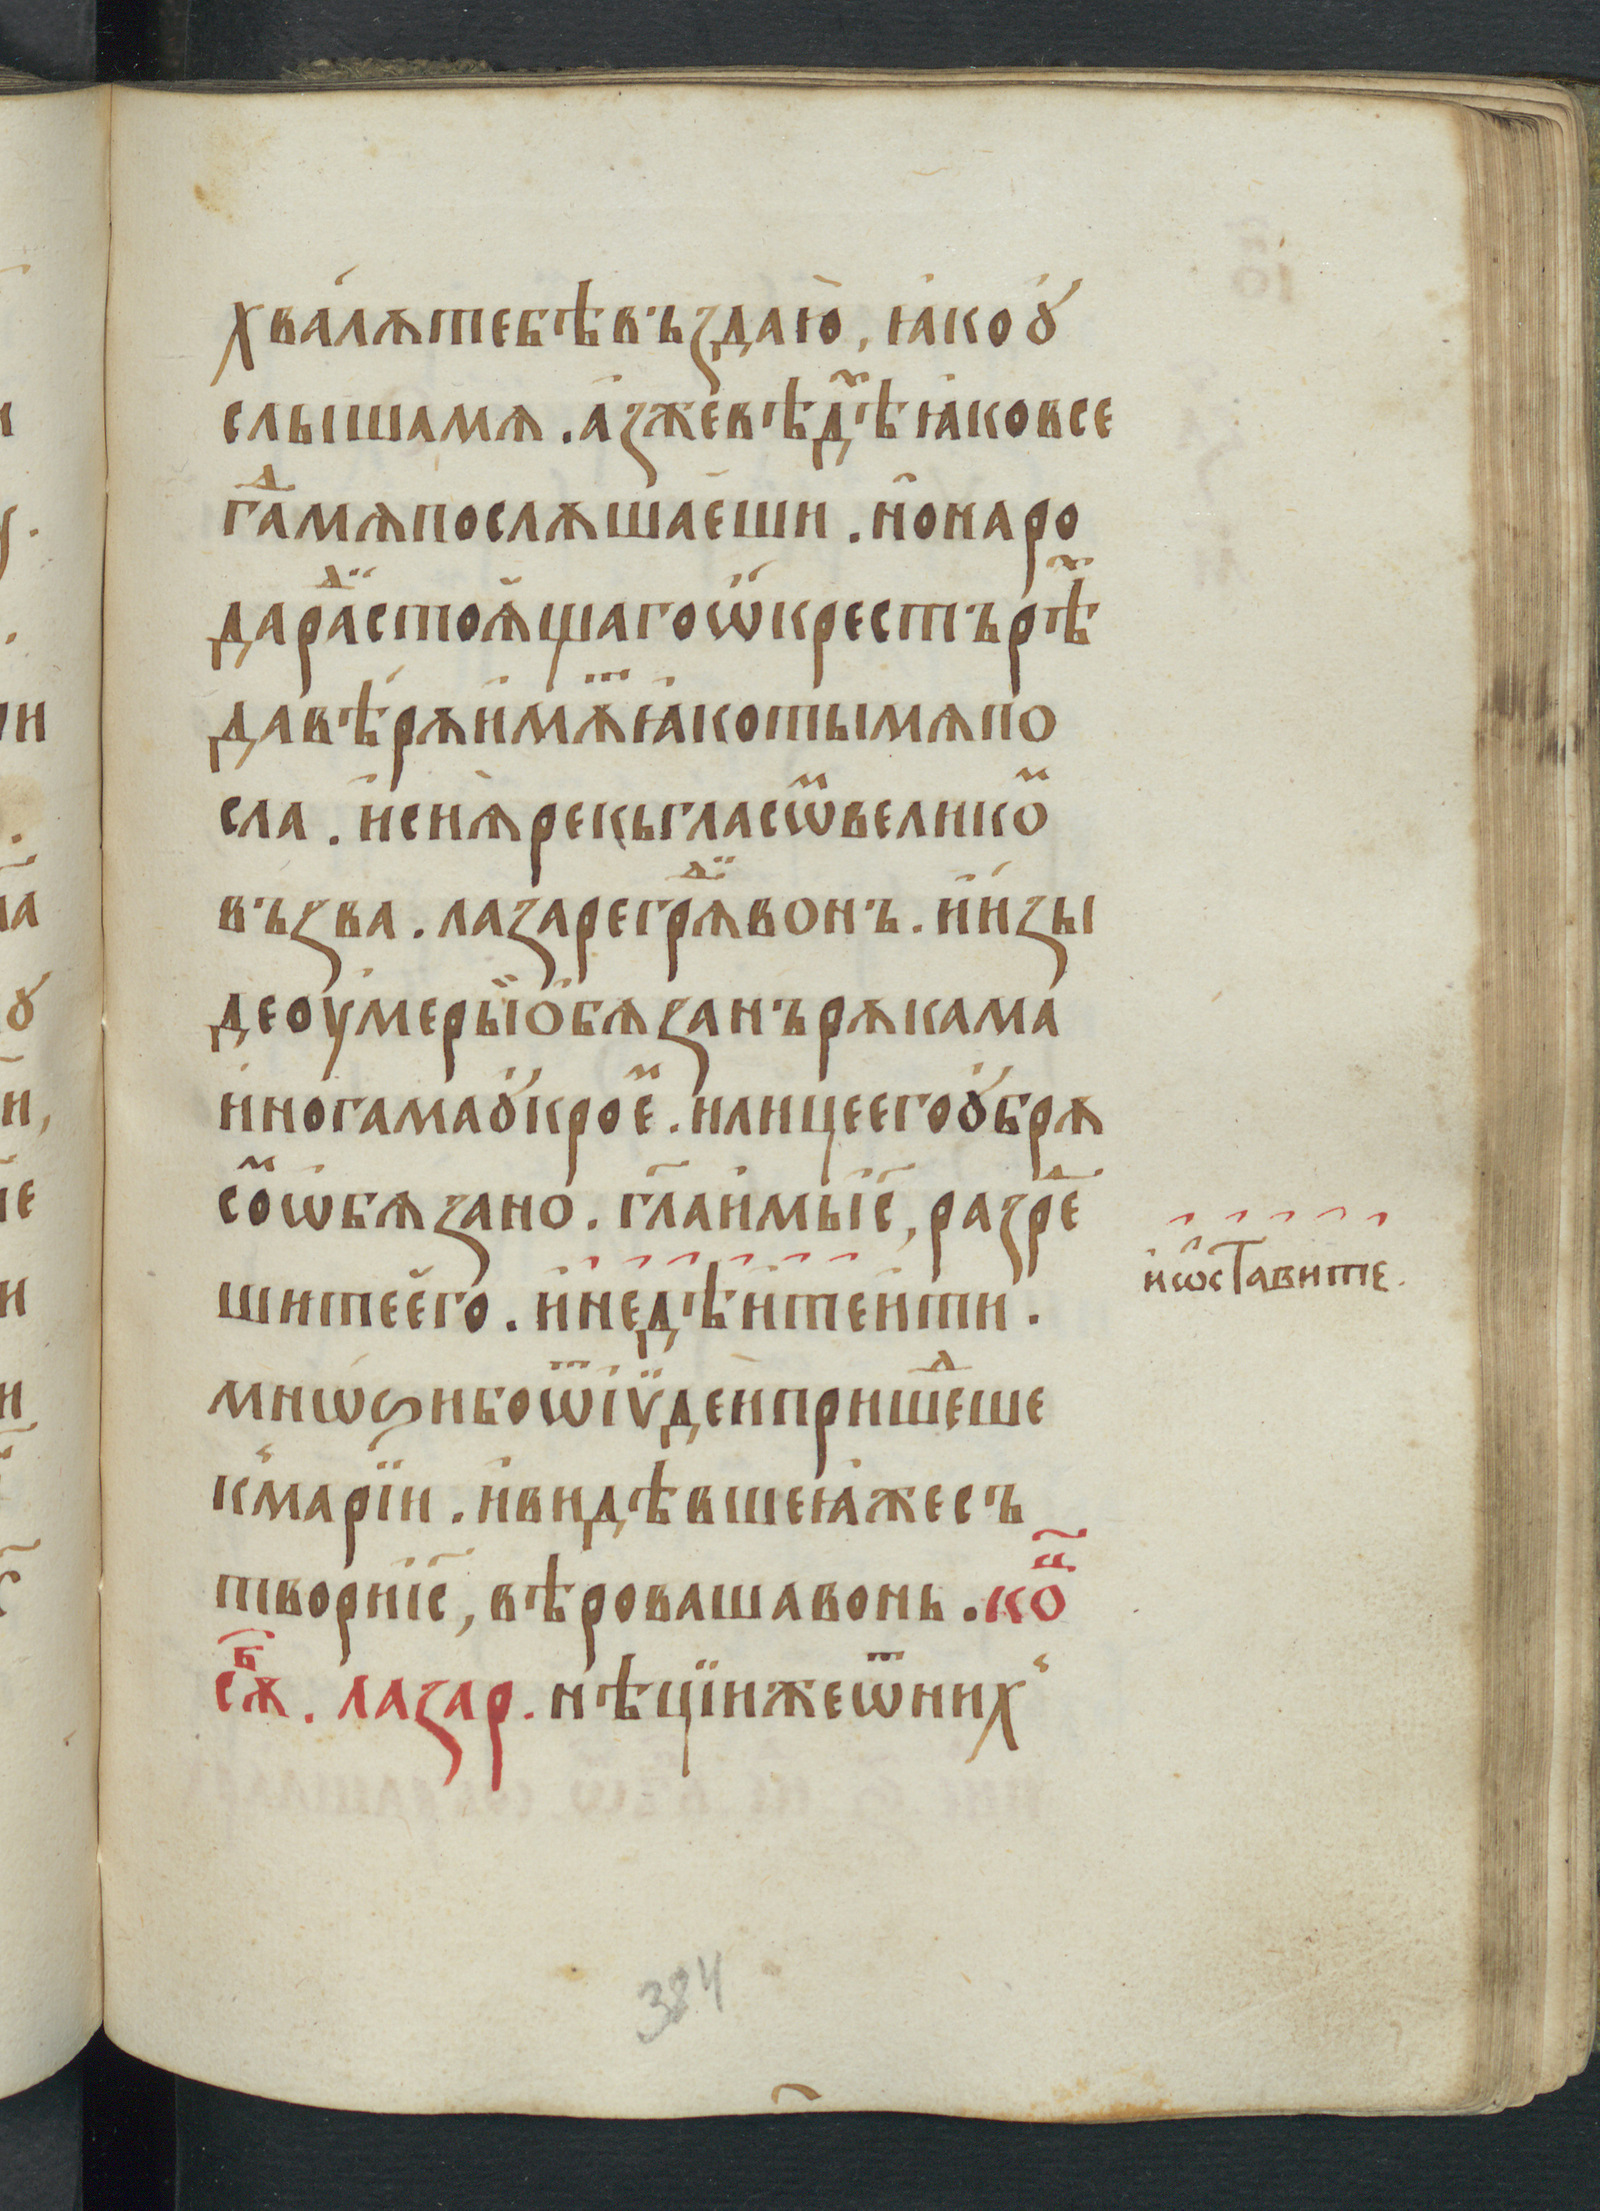 хвалѫтебѣвъздаю, ꙗкоꙋ
слышамѧ. азжевѣдⷯѣꙗковсе
гⷣамѧпослѫшаеши. нонаро
дарⷣастоѧщагоѡкрестърѣⷯ
давѣрѫимѧⷮꙗкотымѧпо
сла. исиѧрекьгласѡⷨвеликоⷨ
възва. лазарегрѧⷣвонъ. иизы
деоумерыиобязанърѫкама
иногамаꙋкроеⷨ. илицеегоꙋбрѫ
соⷨѡбязано. гл҃аимьіс҃, разрⷣе
шитеего. инедѣитеити.
и҆ѡставите.
мнѡѕибоѿіѵдеипришеⷣше
кмаріи. ивидѣвшеꙗжесъ
творііс҃, вѣровашавонь. коⷰ҇
сѫⷠ. лазар. нѣціижеѿних
384